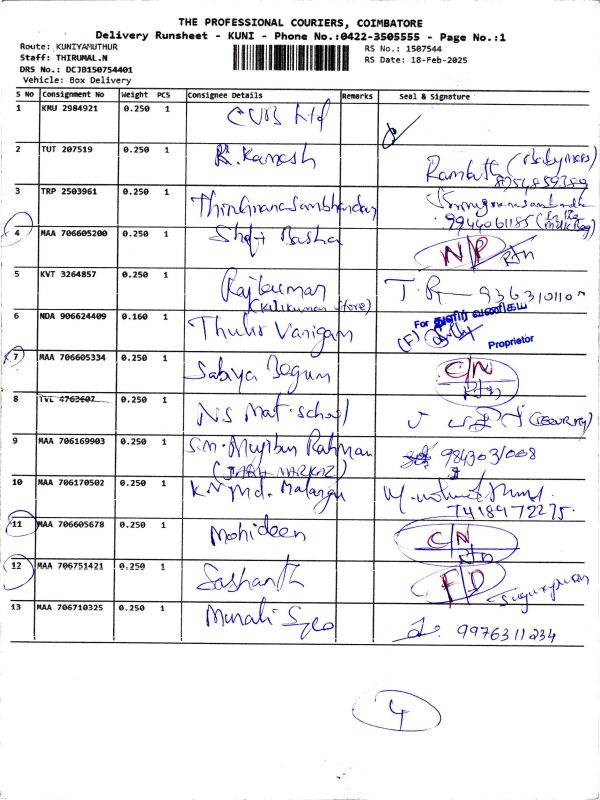 THE PROFESSIONAL COURIERS, COIMBATORE
Delivery Runsheet - KUNI - Phone No.:0422-3505555 - Page No.:1
Route: KUNIYAMUTHUR
RS No.: 1507544
Staff: THIRUMAL.N
RS Date: 18-Feb-2025
DRS No.: DCJB150754401
Vehicle: Box Delivery
S No Consignment No Weight PCS Consignee Details Remarks Seal & Signature
1 KMU 2984921 0.250 1 CUB Ltd
2 TUT 207519 0.250 1 R. Kamesh
8754859389
3 TRP 2503961 0.250 1 Thirugnanasambhandan
9944061185
4 MAA 706605200 0.250 1 Shafi Basha N/P Rtn
5 KVT 3264857 0.250 1 Rajkumar
(Kalikumar Store)
6 NDA 906624409 0.160 1 Thulir Vanigam
For துளிர் வணிகம்
(F)
Proprietor
7 MAA 706605334 0.250 1 Sabiya Begum C/N Rtn
8 TVL 4763607 0.250 1 N.S Mat. school (SECURITY)
9 MAA 706169903 0.250 1 S.M. Mujibur Rahman 984303/008
10 MAA 706170502 0.250 1 K N Md.
7418972275
11 MAA 706605678 0.250 1 Mohideen C/N Rtn
12 MAA 706751421 0.250 1 Sashanth F/D
13 MAA 706710325 0.250 1 Murali 9976311234
4